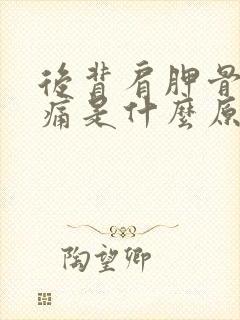 後背肩胛骨
痛是什麼原
陶望卿